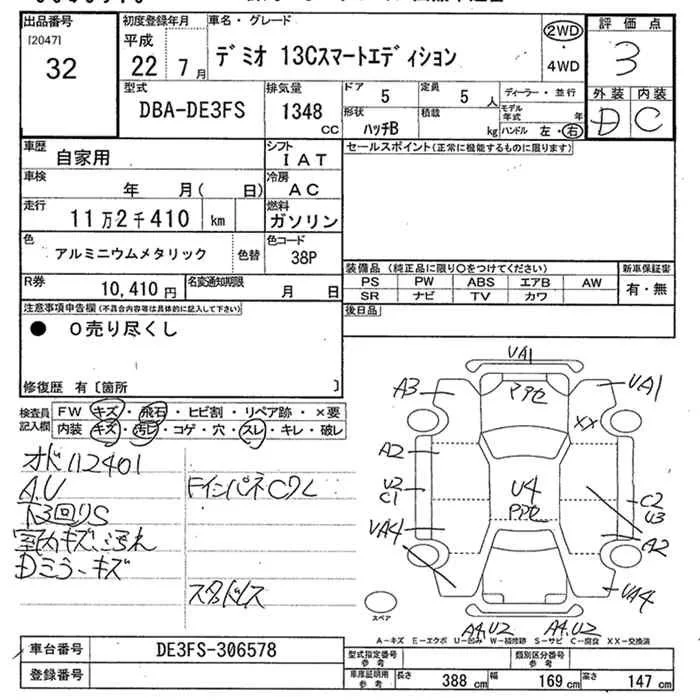 出品番号
[2047]
32
初度登録年月
平成
22 7月
車名・グレード
デミオ 13Cスマートエディション
2WD
・
4WD
評価点
3
外装 内装
D C
型式
DBA-DE3FS
排気量
1348
CC
ドア 5
定員 5 人
形状 ハッチB
積載 kg
ディーラー・並行
モデル年式 年
ハンドル 左・右
車歴 自家用
シフト IAT
セールスポイント(正常に機能するものに限ります)
車検 年 月( 日)
冷房 AC
走行 11万2千410 km
燃料 ガソリン
色 アルミニウムメタリック 色替
色コード 38P
R券 10,410円
名変通知期限 月 日
装備品 (純正品に限り○をつけてください)
新車保証書
PS PW ABS エアB AW
有・無
SR ナビ TV カワ
後日品
注意事項申告欄(不具合内容等は具体的に記入して下さい)
● O売り尽くし
修復歴 有〔箇所 〕
検査員記入欄
FW キズ・飛石・ヒビ割・リペア跡・×要
内装 キズ・汚レ・コゲ・穴・スレ・キレ・破レ
オド112401
A.U
下回りS
室内キズ、汚れ
Dミラーキズ
FインパネCクし
スタッドレス
UA1
A3
アアセ
UA1
XX
A2
U2
C1
U4
アアセ
C2
U3
UA4
A2
UA4
スペア
A4.U2
A4.U2
A−キズ E−エクボ U−凹み W−補修跡 S−サビ C−腐食 XX−交換済
車台番号 DE3FS-306578
登録番号
型式指定番号 参考
類別区分番号 参考
車庫証明用 参考
長さ 388 cm
幅 169 cm
高さ 147 cm